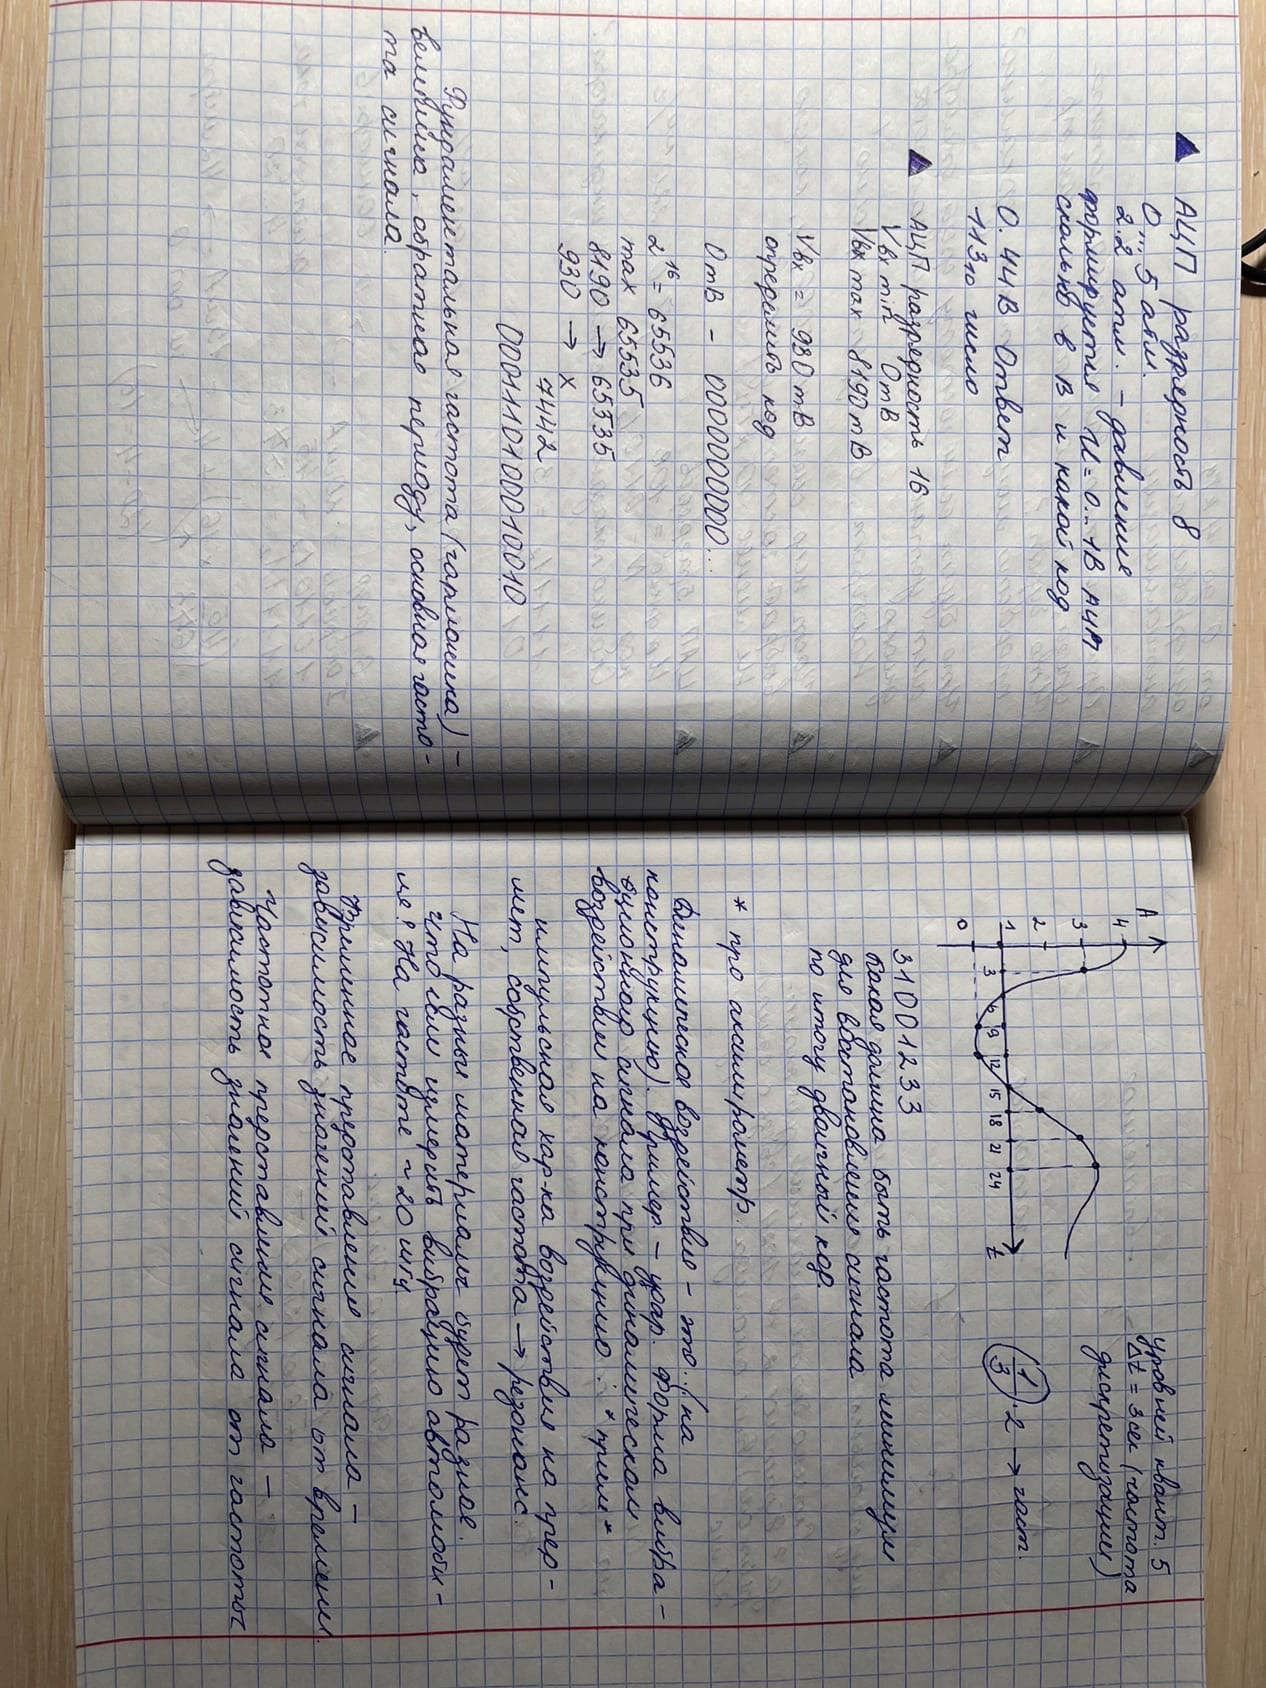 АЦП разрядность 8
0...5 атм.
2.2 атм. – давление
формируется U = 0..1В АЦП
сколько в В и какой код
0.44В Ответ
113₁₀ число
АЦП разрядность 16
Vвх min 0mB
Vвх max 8190mB
Vвх = 930mB
определить код
0mB – 0000000000...
2¹⁶ = 65536
max 65535
8190 → 65535
930 → x
7442
0001110100010010
Фундаментальная частота (гармоника) –
величина, обратная периоду, основная часто-
та сигнала.
A
4
3
2
1
0
3 6 9 12 15 18 21 24
t
уровней квант. 5
Δt = 3сек (частота
дискретизации)
(1/3)·2 → част.
31001233
Какая должна быть частота минимум
для восстановления сигнала
по итогу двоичный код.
* про аксилирометр.
Динамическое воздействие – это..(на
конструкцию). Пример – удар. Форма вибра-
ционного сигнала при динамическом
воздействии на конструкцию : *прим*
импульсная хар-ка воздействия на пред-
мет, собственная частота → резонанс.
На разные материалы будет разное.
Что если измерить вибрацию автомоби-
ля? На частоте ~20 мгц.
Временное представление сигнала –
зависимость значений сигнала от времени.
Частотное представление сигнала –
зависимость значений сигнала от частоты